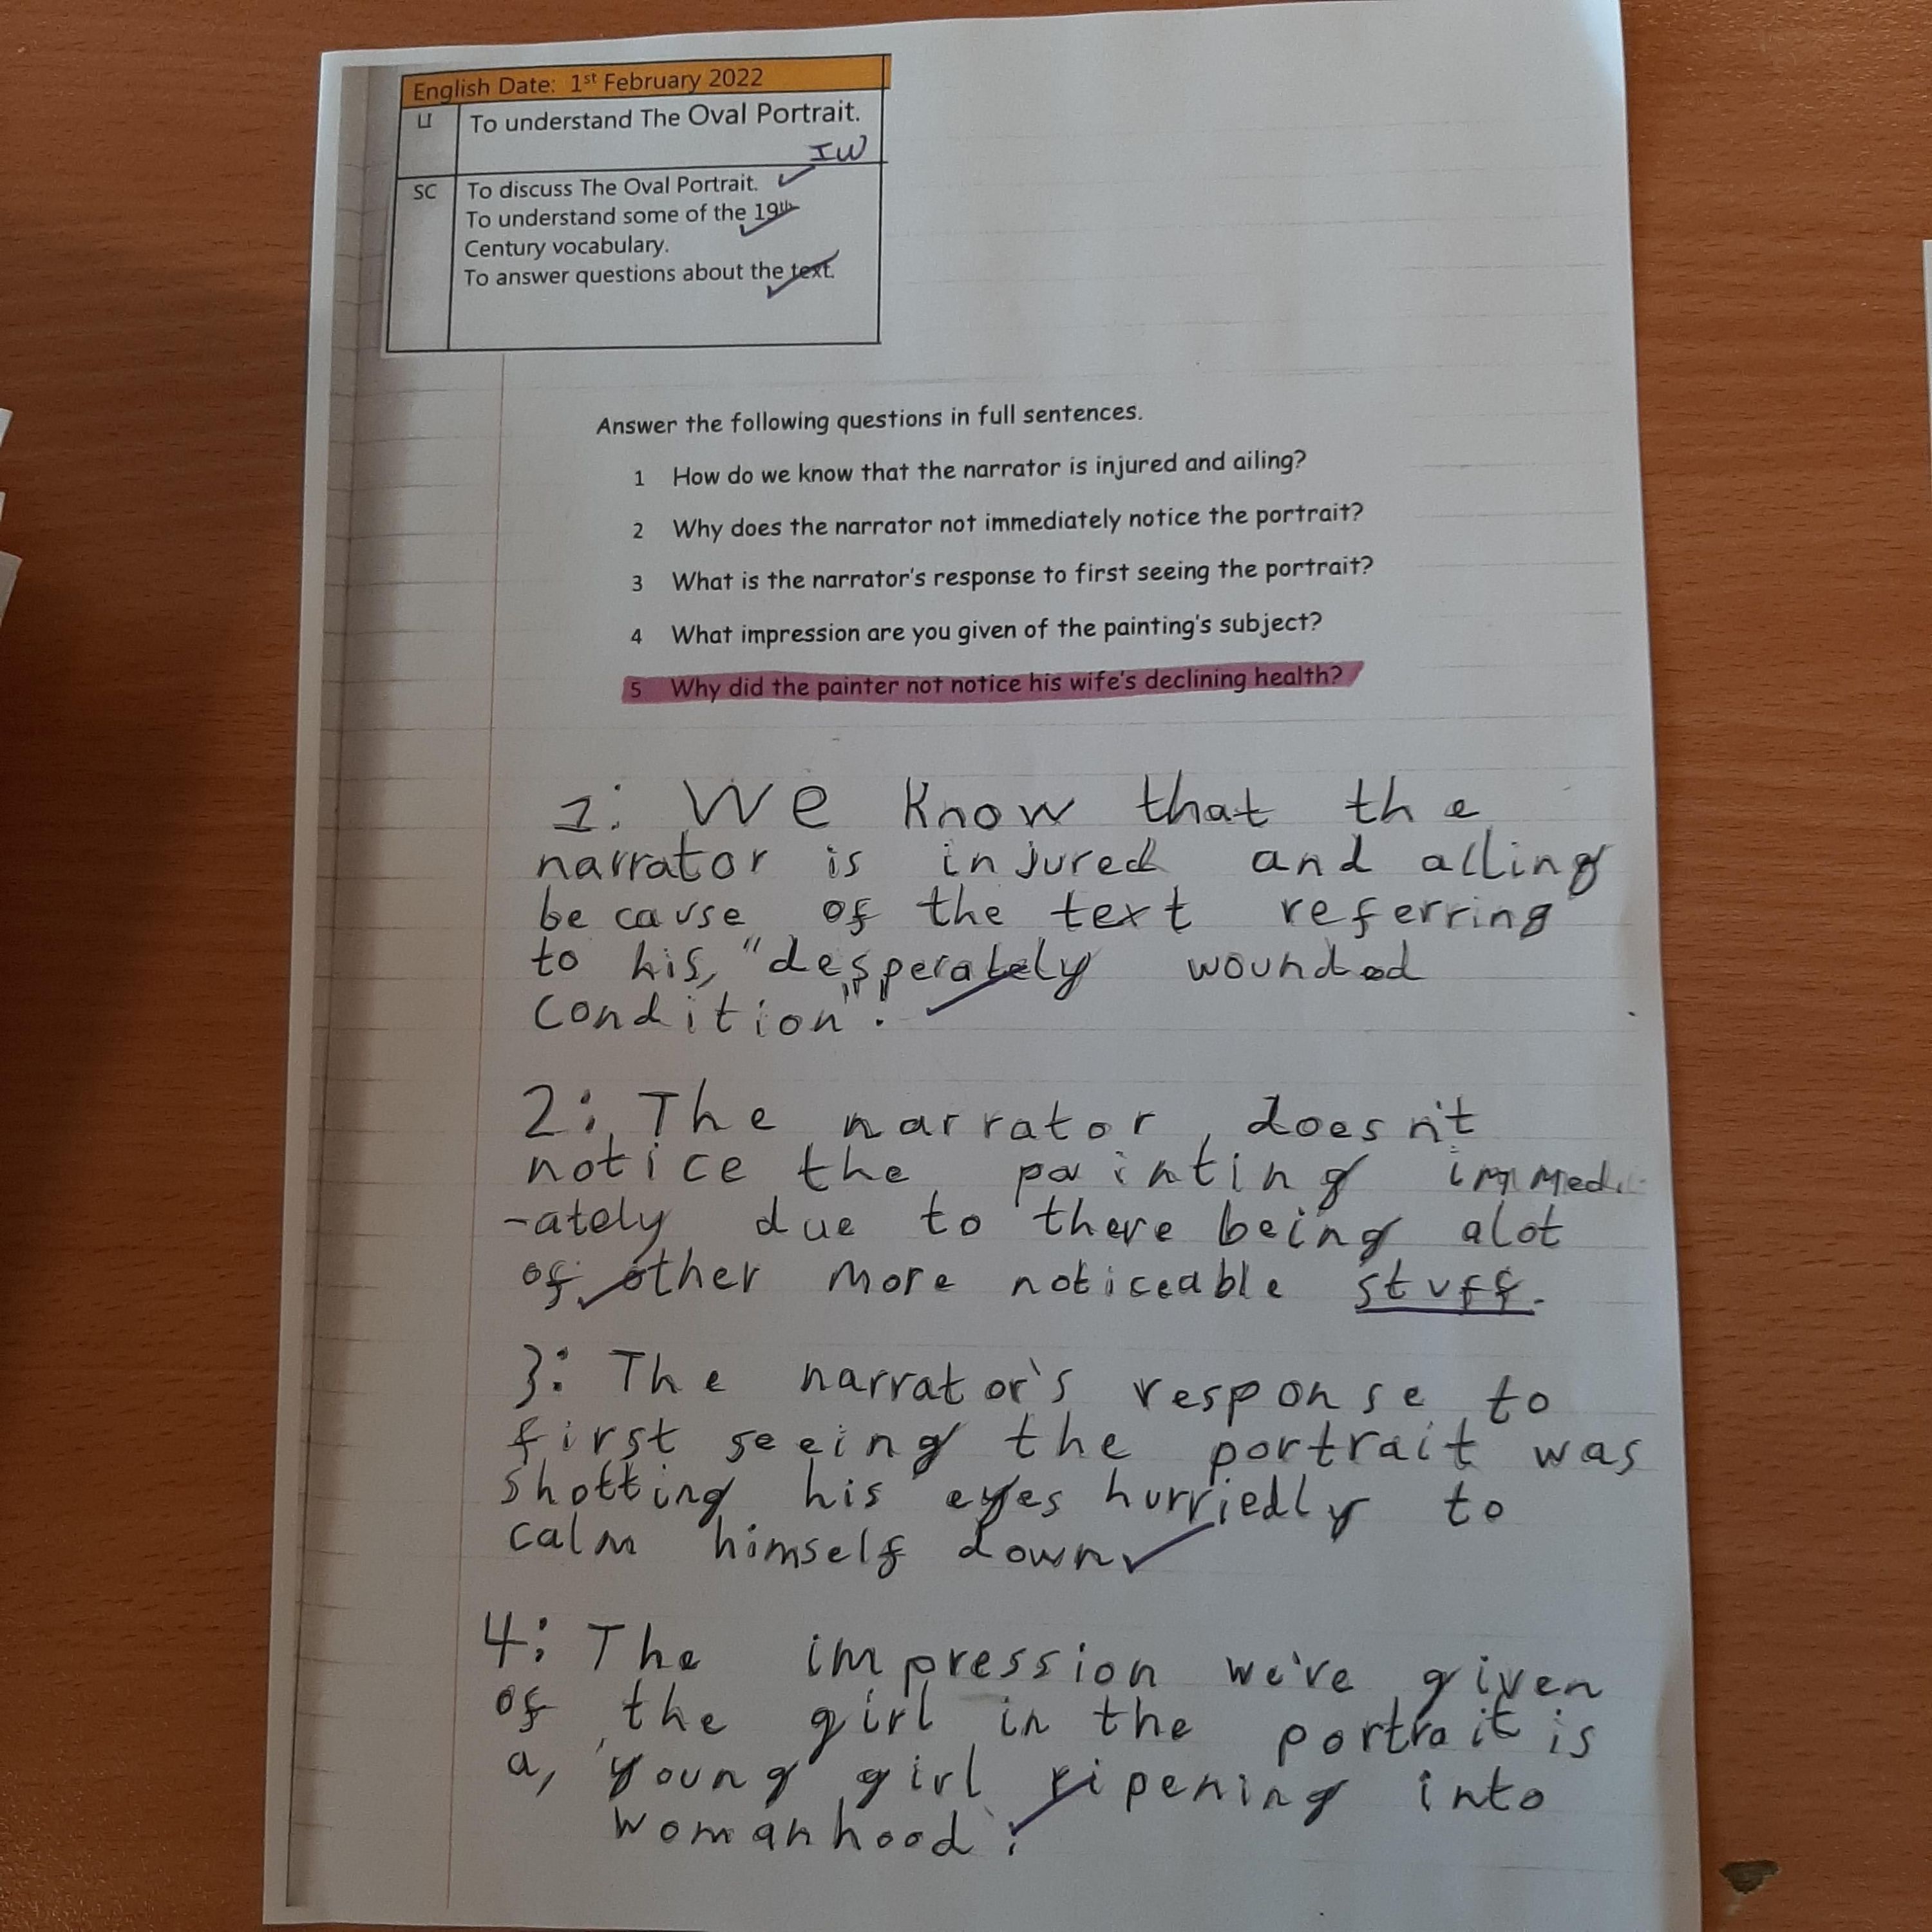 English Date: 1st February 2022
LI To understand The Oval Portrait.
IW
SC To discuss The Oval Portrait.
To understand some of the 19th
Century vocabulary.
To answer questions about the text.
Answer the following questions in full sentences.
1 How do we know that the narrator is injured and ailing?
2 Why does the narrator not immediately notice the portrait?
3 What is the narrator's response to first seeing the portrait?
4 What impression are you given of the painting's subject?
5 Why did the painter not notice his wife's declining health?
1: We know that the
narrator is injured and alling
because of the text referring
to his, "desperately wounded
condition".
2: The narrator doesn't
notice the painting immedi
-ately due to there being alot
of other more noticeable stuff.
3: The narrator's response to
first seeing the portrait was
shotting his eyes hurriedly to
calm himself down
4: The impression we've given
of the girl in the portrait is
a, 'young girl ripening into
womanhood'.